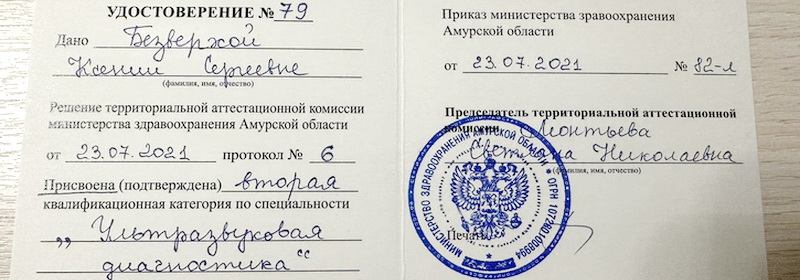 УДОСТОВЕРЕНИЕ № 79
Дано Безверхой
Ксении Сергеевне
(фамилия, имя, отчество)
Решение территориальной аттестационной комиссии
министерства здравоохранения Амурской области
от 23.07.2021 протокол № 6
Присвоена (подтверждена) вторая
квалификационная категория по специальности
„Ультразвуковая
диагностика“
Приказ министерства зравоохранения
Амурской области
от 23.07.2021 № 82-л
Председатель территориальной аттестационной
комиссии Леонтьева
Светлана Николаевна
(фамилия, имя, отчество)
Печать
МИНИСТЕРСТВО ЗДРАВООХРАНЕНИЯ АМУРСКОЙ ОБЛАСТИ
ОГРН 1072801008994